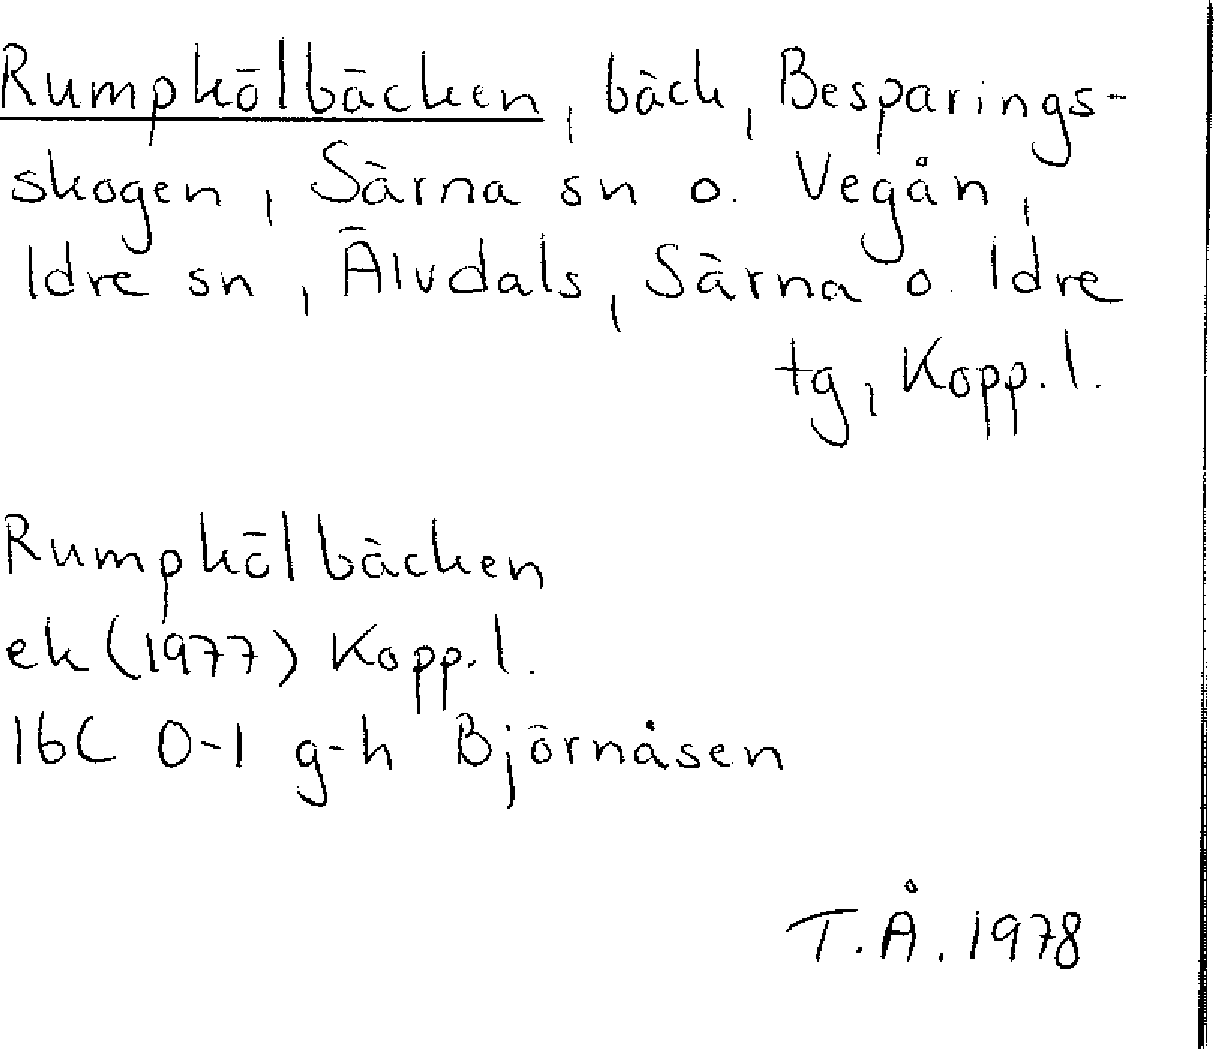 Rumpkölbäcken, bäck, Besparings-
skogen, Särna sn o. Vegån,
Idre sn, Älvdals, Särna o. Idre
tg, Kopp. l.
Rumpkölbäcken
ek (1977) Kopp. l.
16C 0-1 g-h Björnåsen
T.Å. 1978